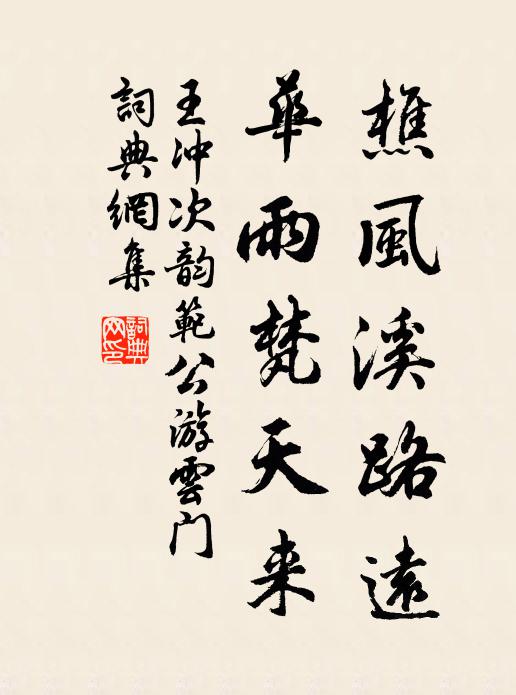 樵風溪路遠
華雨梵天来
王冲次韵範公游雲门
詞典網集
詞典网印